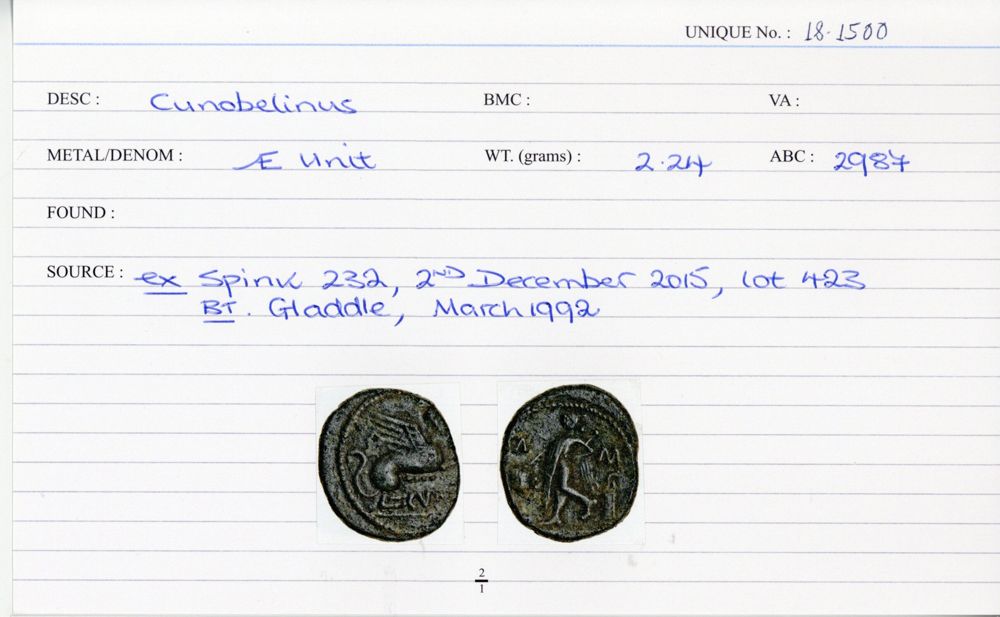 UNIQUE No. : 18.1500
DESC : Cunobelinus BMC : VA :
METAL/DENOM : Æ Unit WT. (grams) : 2.24 ABC : 2987
FOUND :
SOURCE : ex Spink 232, 2ND December 2015, lot 423
BT. Gladdle, March 1992
2
1